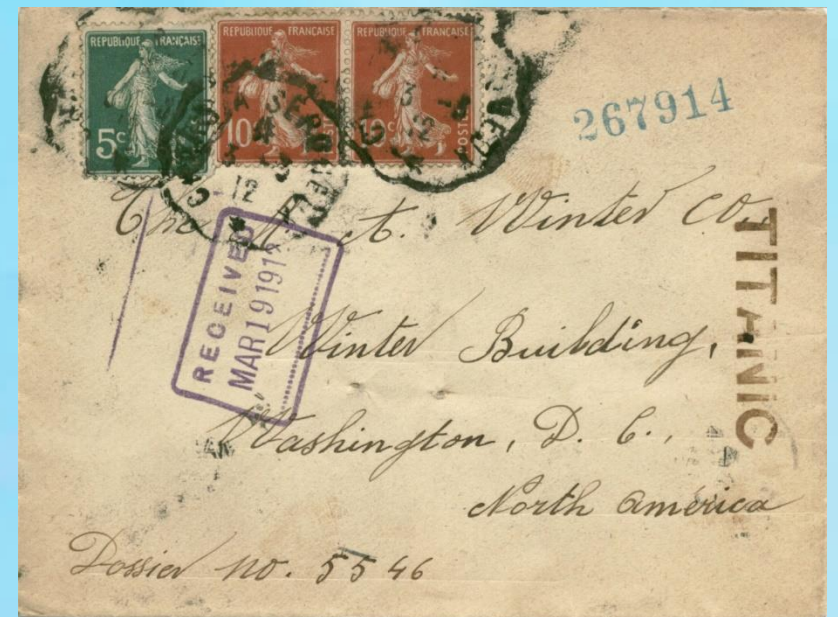 REPUBLIQUE FRANÇAISE
5c
REPUBLIQUE FRANÇAISE
10
POSTES
REPUBLIQUE FRANÇAISE
10c
POSTES
267914
12
The A. Winter Co.
TITANIC
RECEIVED
MAR 19 191
Winter Building,
Washington, D. C.,
North America
Dossier no. 5546